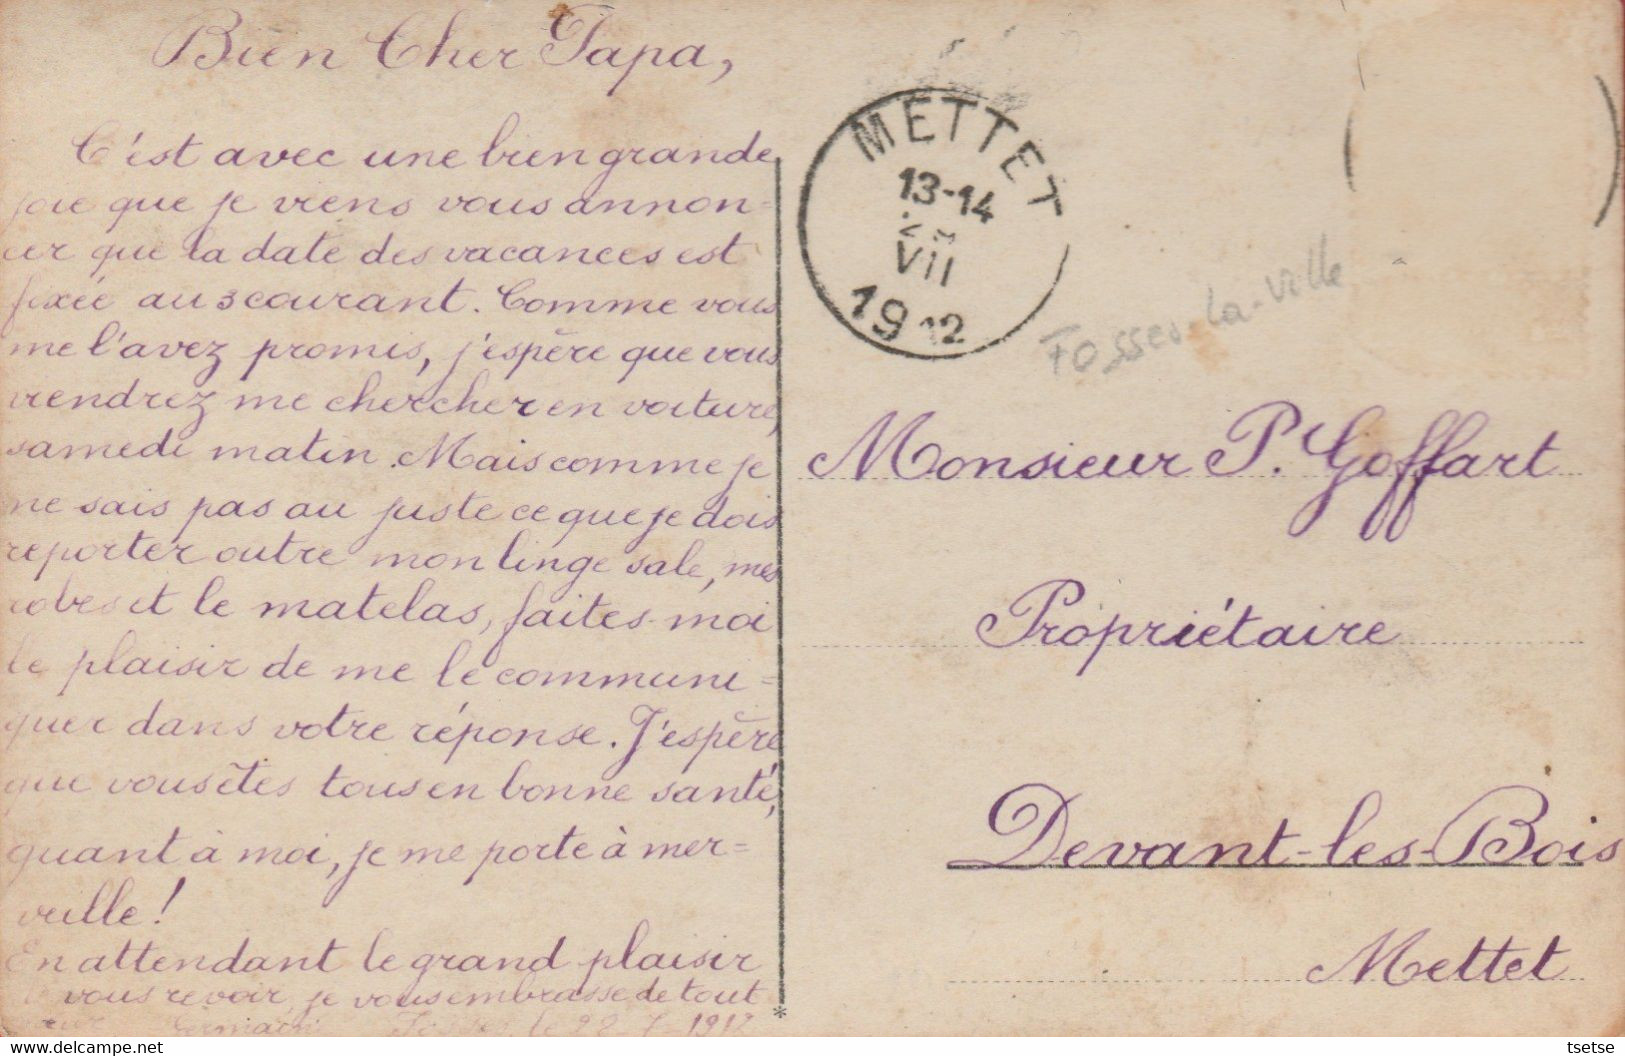 Bien Cher Papa,
C'est avec une bien grande
joie que je viens vous annon=
cer que la date des vacances est
fixée au 3 courant. Comme vous
me l'avez promis, j'espère que vous
viendrez me chercher en voiture,
samedi matin. Mais comme je
ne sais pas au juste ce que je dois
reporter outre mon linge sale, mes
robes et le matelas, faites-moi
le plaisir de me le communi=
quer dans votre réponse. J'espère
que vous êtes tous en bonne santé,
quant à moi, je me porte à mer=
veille!
En attendant le grand plaisir
vous revoir, je vous embrasse de tout
cœur Fosses, le 1912
METTET
13-14
VII
1912
Fosses-la-Ville
Monsieur P. Goffart
Propriétaire
Devant-les-Bois
Mettet
*
tsetse